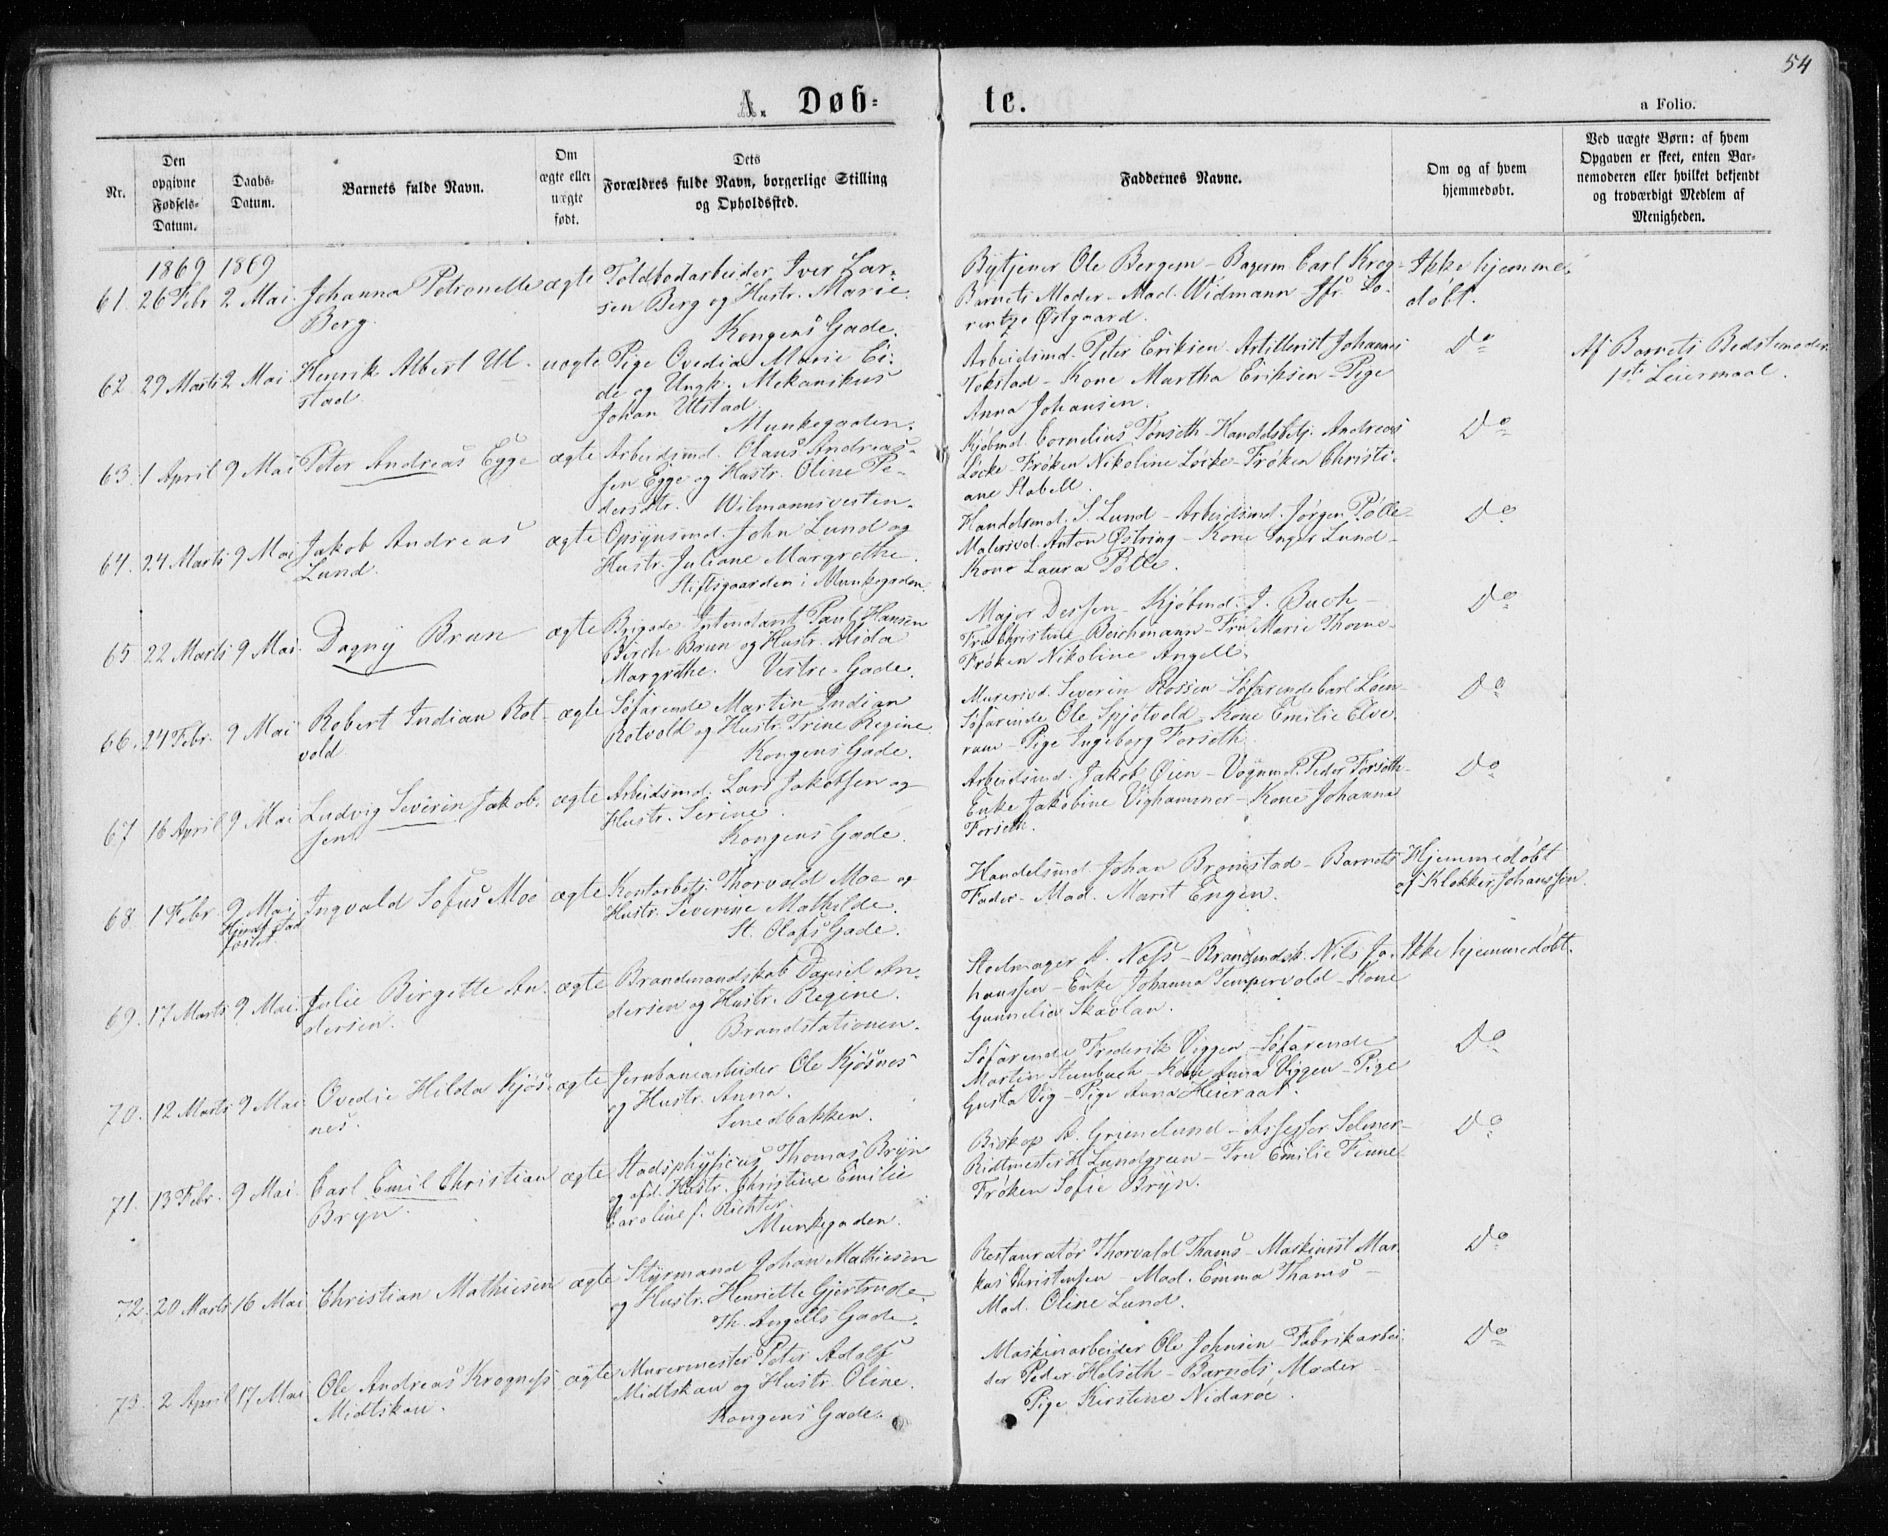 54
A. Døb-
te.
a Folio.
Nr.
Den opgivne Fødsels-Datum.
Daabs-Datum.
Barnets fulde Navn.
Om ægte eller uægte født.
Dets Forældres fulde Navn, borgerlige Stilling og Opholdssted.
Faddernes Navne.
Om og af hvem hjemmedøbt.
Ved uægte Børn: af hvem Opgaven er skeet, enten Barnemoderen eller hvilket bekjendt og troværdigt Medlem af Menigheden.
1869 1869
61. 26 Febr. 2 Mai. Johanna Petronelle ægte Toldbodarbeider Iver Lar-
Berg. sen Berg og Hustr. Marie.
Kongens Gade.
Bytjener Ole Bergem - Bagerm. Carl Krog-
Barnets Moder - Mad. Widmann Jfr. Lo-
rentze Østgaard.
Ikke hjemme-
døbt.
62. 29 Marts 2 Mai Henrik Albert Ul- uægte Pige Ovedia Marie Ei-
stad. de og Ungk. Mekanikus
Johan Ulstad.
Munkegaden.
Arbeidsmd. Peter Eriksen - Artillerist Johannes
Tokstad - Kone Martha Eriksen - Pige
Anna Johansen.
Do
Af Barnets Bedstemoder.
1ste Leiermaal.
63. 1 April 9 Mai Peter Andreas Egge ægte Arbeidsmd. Olaus Andreas-
sen Egge og Hustr. Oline Pe-
dersdtr. Wilmannsvesten.
Kjøbmd. Cornelius Tønseth - Handelsbetj. Andreas
Løcke - Frøken Nikoline Løcke - Frøken Christi-
ane Stabell.
Do
64. 24 Marts 9 Mai Jakob Andreas ægte Opsynsmd. John Lund og
Lund. Hustr. Juliane Margrethe.
Stiftsgaarden i Munkegaden.
Handelsmd. S. Lund - Arbeidsmd. Jørgen Pølle-
Malersvd. Anton Østring - Kone Inger Lund-
Kone Laura Pølle.
Do
65 22 Marts 9 Mai. Dagny Brun ægte Brigade Intendant Paul Hansen
Birch Brun og Hustr. Alida
Margrethe. Vestre Gade.
Major Dessen - Kjøbmd. J. Buch -
Fru Christine Beichmann - Fru Marie Thorne-
Frøken Nikoline Angell.
Do
66. 24 Febr. 9 Mai Robert Indian Rot- ægte Søfarende Martin Indian
vold. Rotvold og Hustr. Trine Regine
Kongens Gade.
Murersvd. Severin Rossen - Søfarende Carl Løen-
Søfarende Ole Spjøtvold - Kone Emilie Elve-
rum - Pige Ingeborg Forseth.
Do
67 16 April 9 Mai Ludvig Severin Jakob- ægte Arbeidsmd. Lars Jakobsen og
sen. Hustr. Serine.
Kongens Gade.
Arbeidsmd. Jakob Øien - Vognmd. Peder Forseth-
Enke Jakobine Vighammer - Kone Johanna
Forseth.
Do
68 1 Febr. 9 Mai Ingvald Sofus Moe ægte Kontorbetj. Thorvald Moe og
Hustr. Severine Mathilde.
St. Olafs Gade.
Handelsmd. Johan Bromstad - Barnets
Fader - Mad. Marit Engen.
Hjemmedøbt
af Klokker Johanssen.
69. 17 Marts 9 Mai. Julie Birgitte An- ægte Brandmandskab Daniel An-
dersen. dersen og Hustr. Regine.
Brandstationen.
Stolmager A. Næss - Brandmdsk. Nils Jo-
hanssen - Enke Johanna Tempervold - Kone
Gunnelia Skavlan.
Ikke hjemmedøbt.
70. 12 Marts 9 Mai Ovedie Hilda Kjøs- ægte Jernbanearbeider Ole Kjøsnes
nes. og Hustr. Anna.
Smedbakken.
Søfarende Frederik Viggen - Søfarende
Martin Stenbuch - Kone Anna Viggen - Pige
Gusta Vig - Pige Anna Heieraas.
Do
71. 13 Febr. 9 Mai. Carl Emil Christian ægte Stadsphysicus Thomas Bryn
Bryn. og afd. Hustr. Christine Emilie
Caroline f. Richter.
Munkegaden.
Biskop A. Grimelund - Assessor Selmer-
Ridtmester H. Lundgreen - Fru Emilie Finne
Frøken Sofie Bryn.
Do
72. 20 Marts 16 Mai Christian Mathiesen ægte Styrmand Johan Mathiesen
og Hustr. Henriette Gjertrude.
Th. Angells Gade.
Restauratør Thorvald Thams - Maskinist Mar-
kus Christensen - Mad. Emma Thams -
Mad. Oline Lund.
Do
73. 2 April 17 Mai Ole Andreas Krogness ægte Murermester Peter Adolf
Midtskau. Midtskau og Hustr. Oline.
Kongens Gade.
Maskinarbeider Ole Johnsen - Fabrikarbei-
der Peder Holseth - Barnets Moder -
Pige Kirstine Nidaroe.
Do